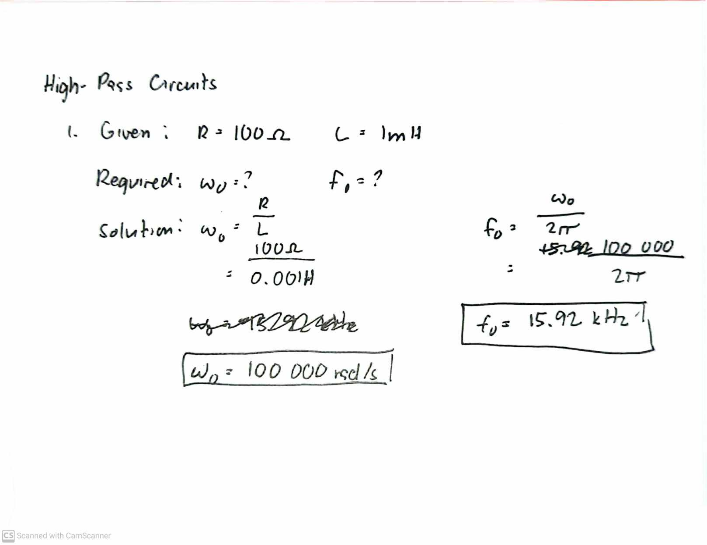 High-Pass Circuits
1. Given: R = 100Ω L = 1mH
Required: ω₀ = ? f₀ = ?
Solution: ω₀ = R/L
= 100Ω/0.001H
ω₀ = 100 000 rad/s
f₀ = ω₀/2π
= 100 000/2π
f₀ = 15.92 kHz
CS Scanned with CamScanner